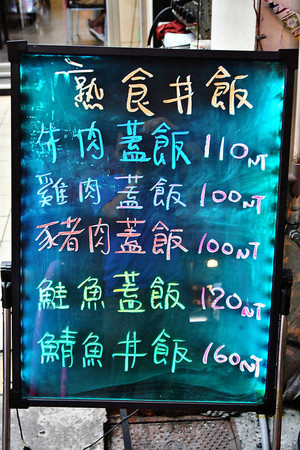 熟食丼飯
牛肉蓋飯 110NT
雞肉蓋飯 100NT
豬肉蓋飯 100NT
鮭魚蓋飯 120NT
鯖魚丼飯 160NT